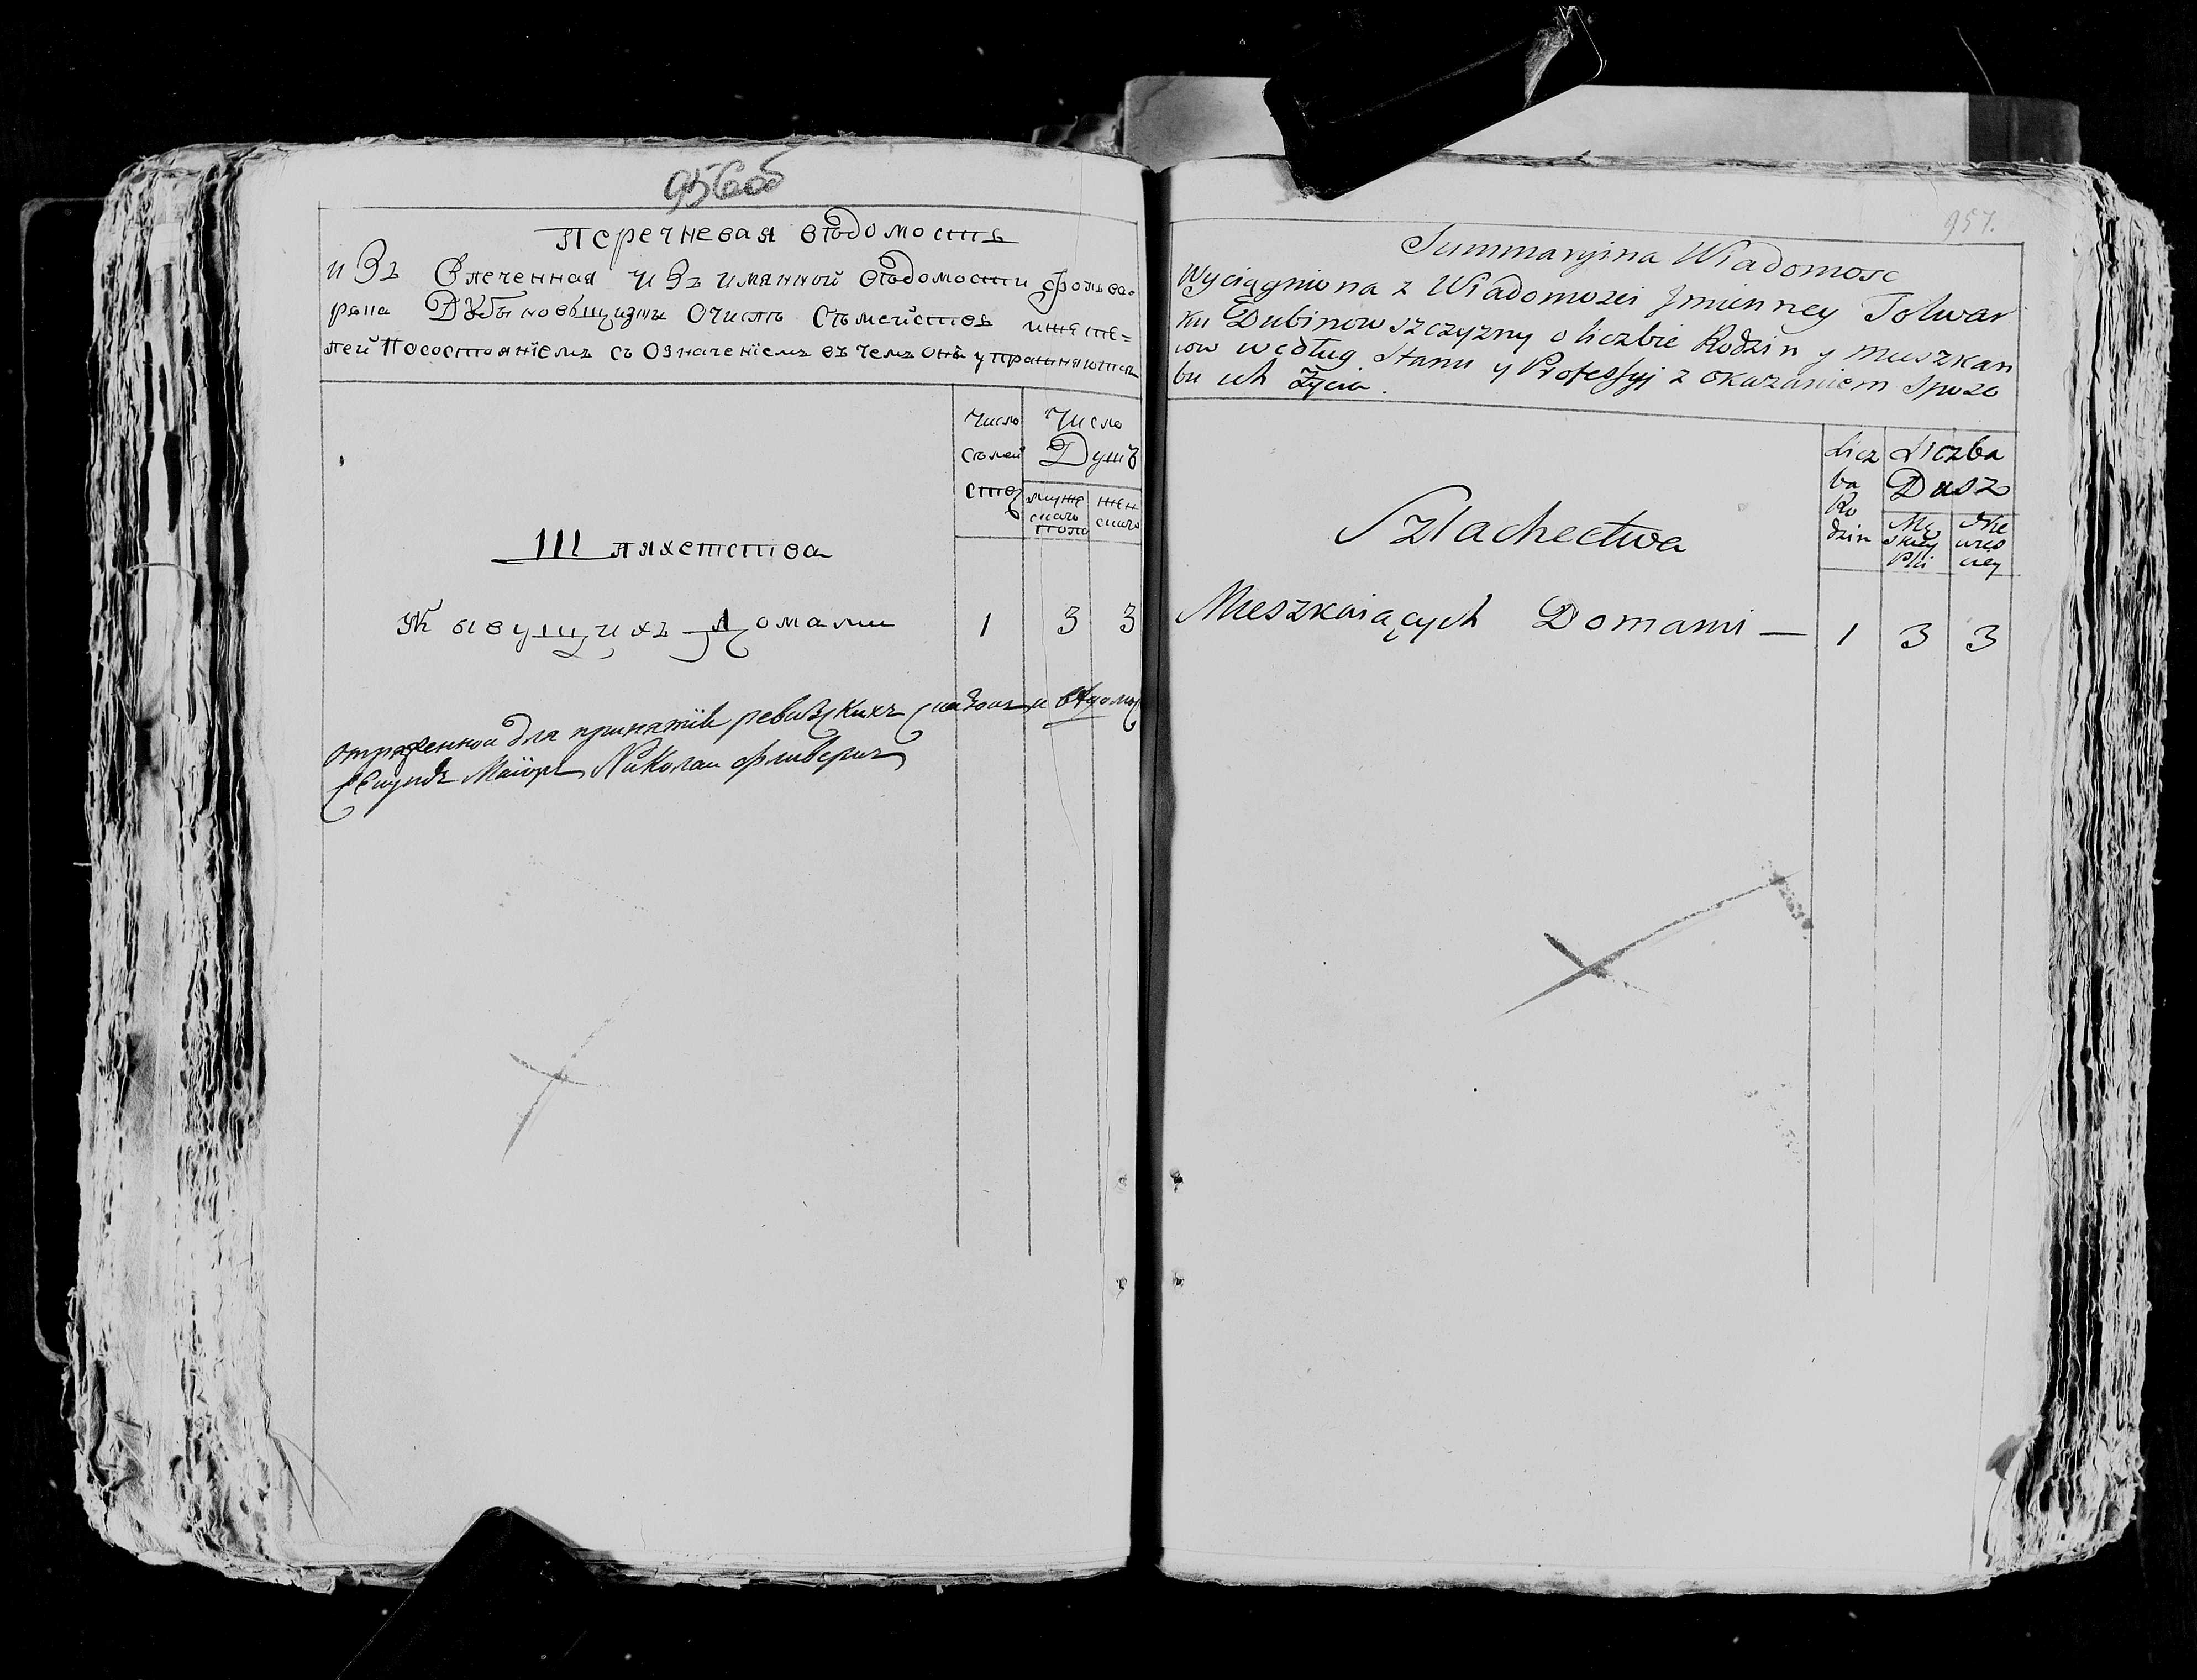 956об
Перечневая вѣдомость
изъ влеченная изъ имянной вѣдомости фольва
рка Дубыновщизны о числѣ сѣмействъ и жите=
лей по состоянiемъ съ означенiемъ въ чемъ онѣ упражняются
Число
сѣмей
ствъ
Число
Душъ
мужес
скаго
пола
жен
скаго
Шляхетства
Живущихъ домами 1 3 3
отряженной для принятiя ревизскихъ сказокъ и вѣдомос
Секундъ Маiоръ Николай
957.
Summaryina Wiadomosc
Wyciągniona z Wiadomości Jmienney Folwar
ku Dubinowszczyzny o liczbie Rodzin y mieszkan
iow według Stanu y Professyj z okazaniem Sposo
bu ich Życia.
Licz
ba
Ro
dzin
Liczba
Dusz
Mę
skiey
Płci
Nie
wies
ciey
Szlachectwa
Mieszkaiących Domami — 1 3 3